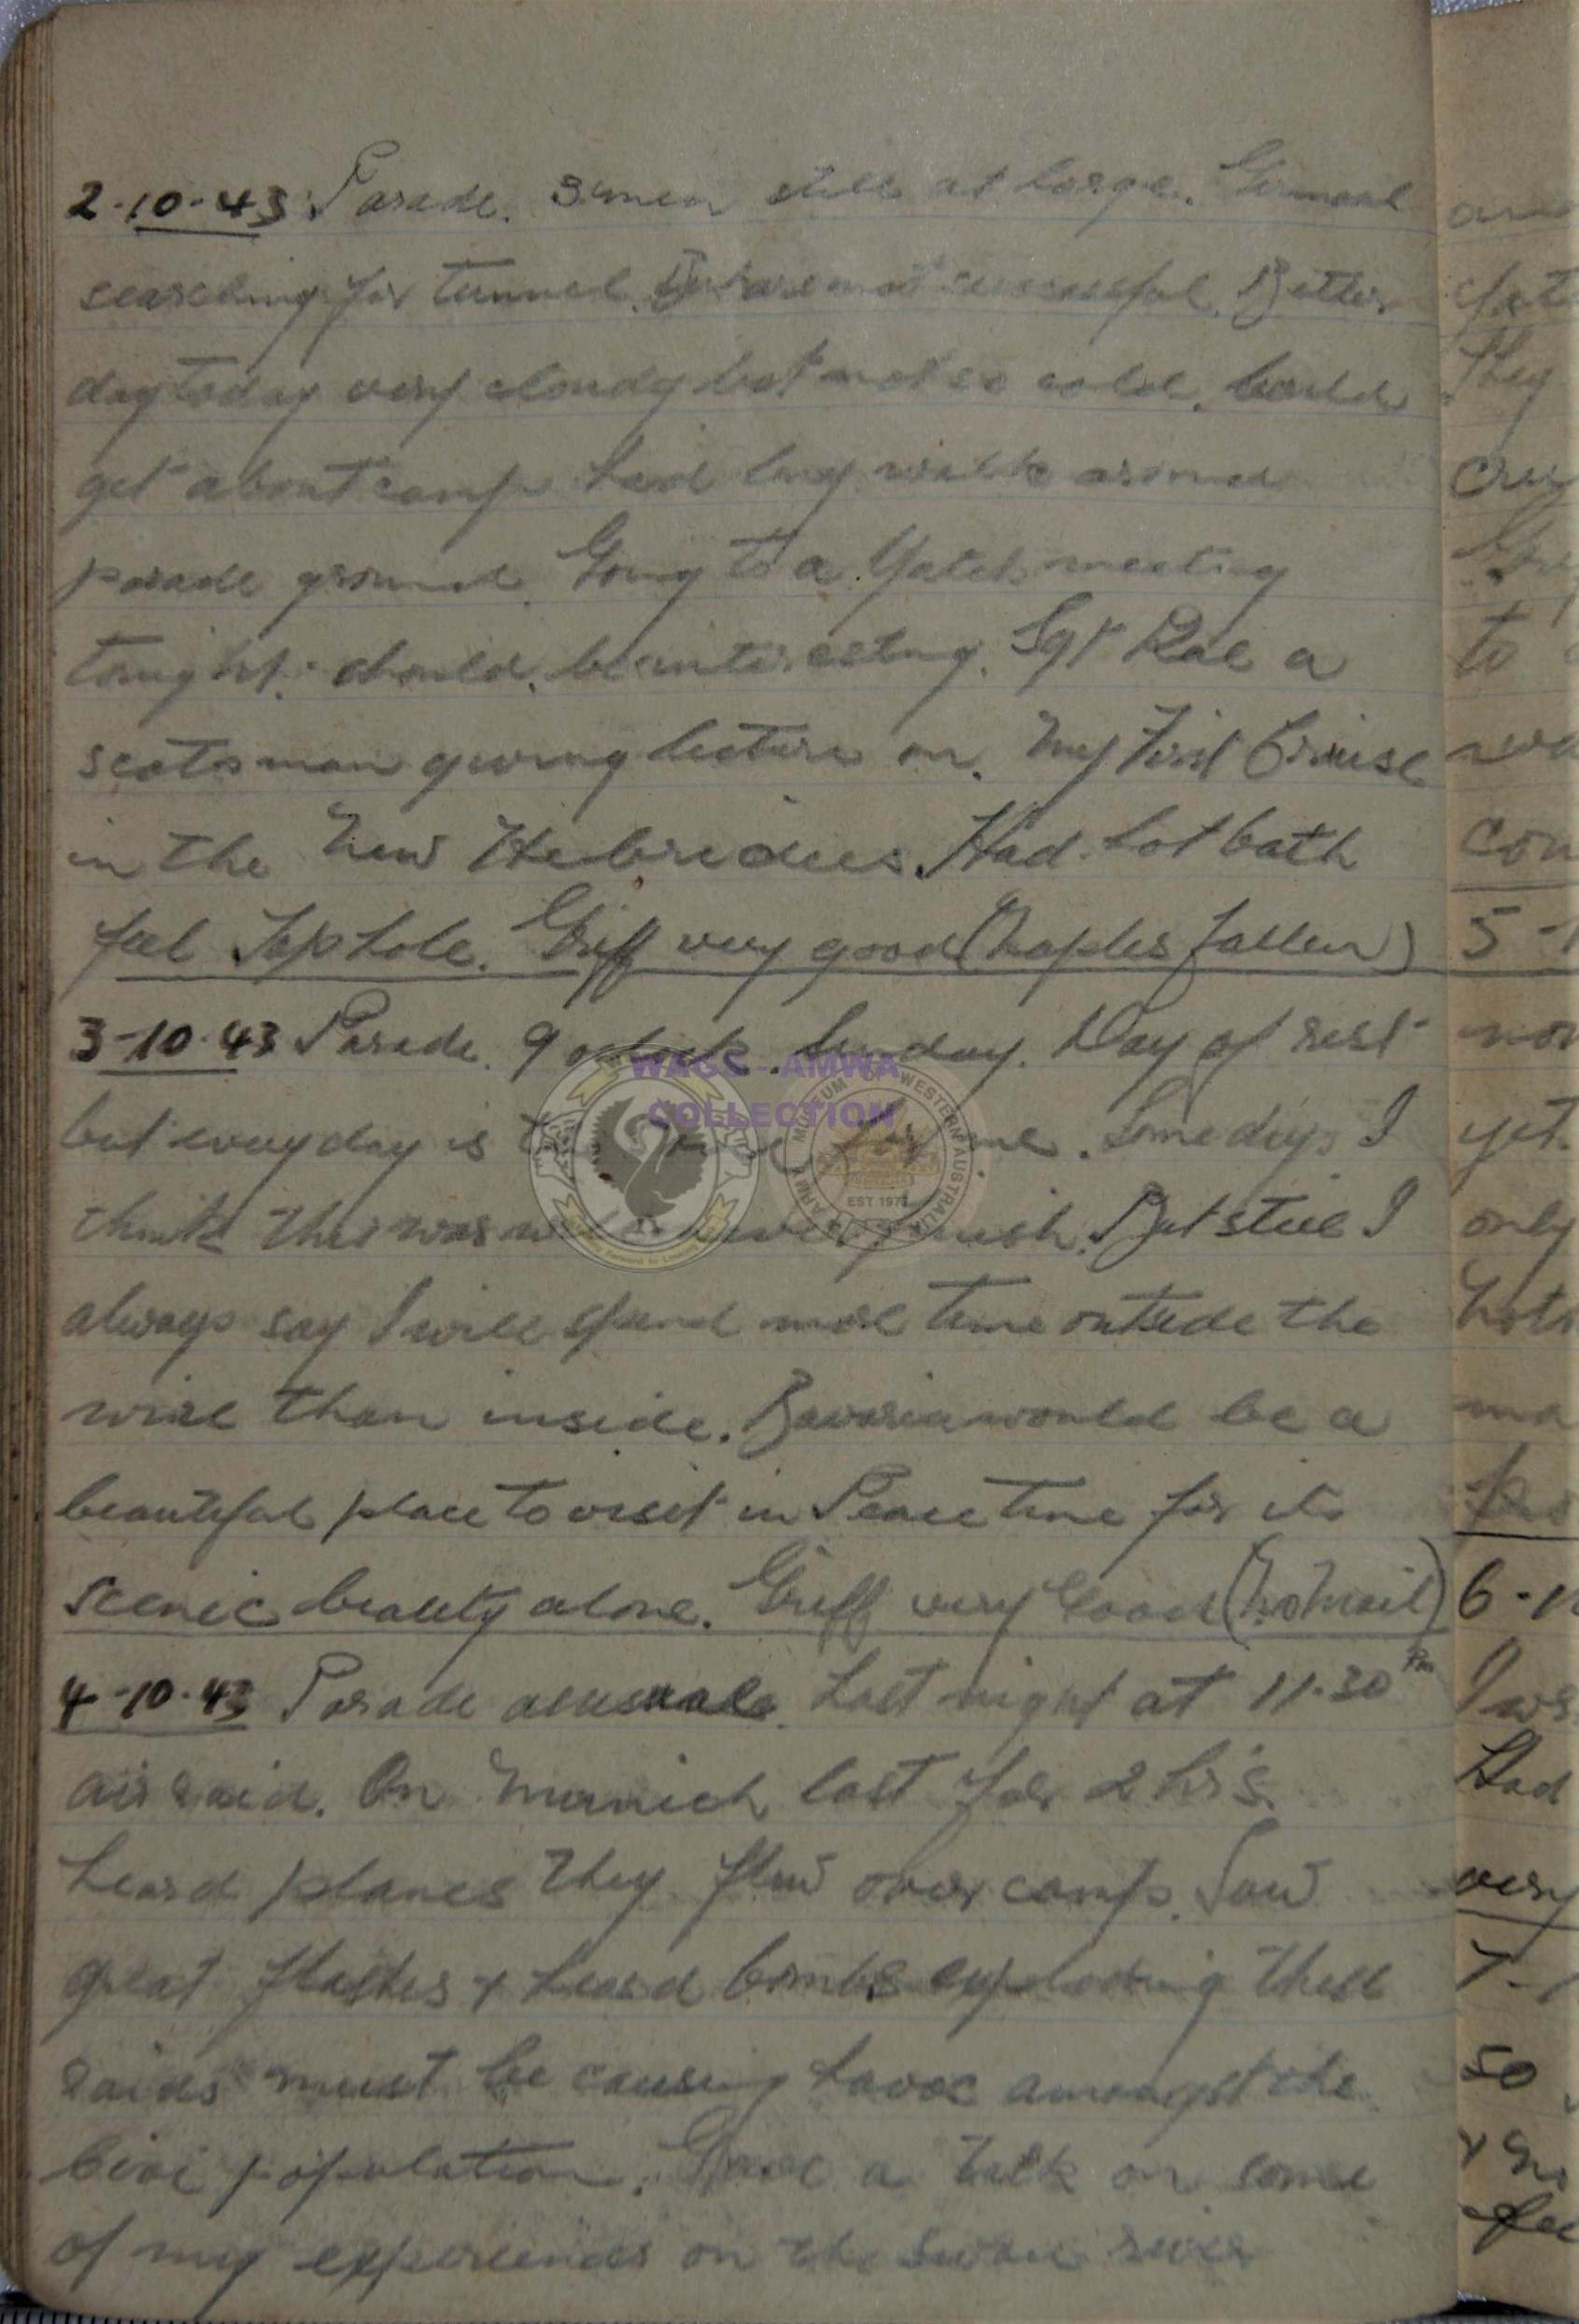 2-10-43 Parade. 3 men still at large. Germans
searching for tunnel. successful. Better
day today very cloudy but not so cold. Could
get about camp had long walk around
parade ground. Going to a Yatch meeting
tonight. should be interesting. Sgt Rae a
scotsman giving lecture on. My First Cruise
in the New Hebridees. Had hot bath
feel Tophole. Griff very good (Naples fallen)
3-10-43 Parade. 9 oclock. Sunday. Day of rest
but every day is me. Some days I
think this war will never finish. But still I
always say I will spend more time outside the
wire than inside. Bavaria would be a
beautiful place to visit in Peace time for its
scenic beauty alone. Griff very Good (No Mail)
4-10-43 Parade as usual. Last night at 11.30 Pm
air raid. On Munich last for 2 hrs.
heard planes they flew over camp. Saw
great flashes + heard bombs exploding these
raids must be causing havoc amongst the
Civi population. Gave a talk on some
of my experiences on the Swan river
WAGS - AMWA
COLLECTION
ARMY MUSEUM OF WESTERN AUSTRALIA
EST 1977
they
to
con
5-1
yet.
only
6-1
Had
very
7-
50